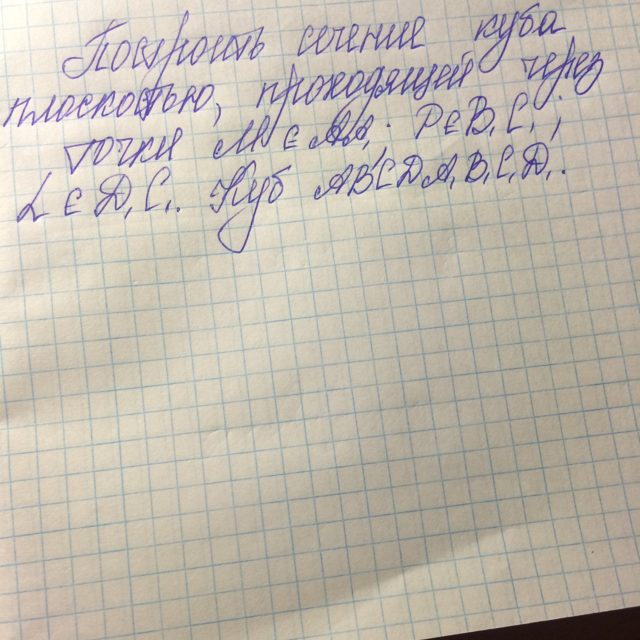 Построить сечение куба
плоскостью, проходящей через
точки M ∈ AA₁. P ∈ B₁C₁;
L ∈ D₁C₁. Куб ABCDA₁B₁C₁D₁.